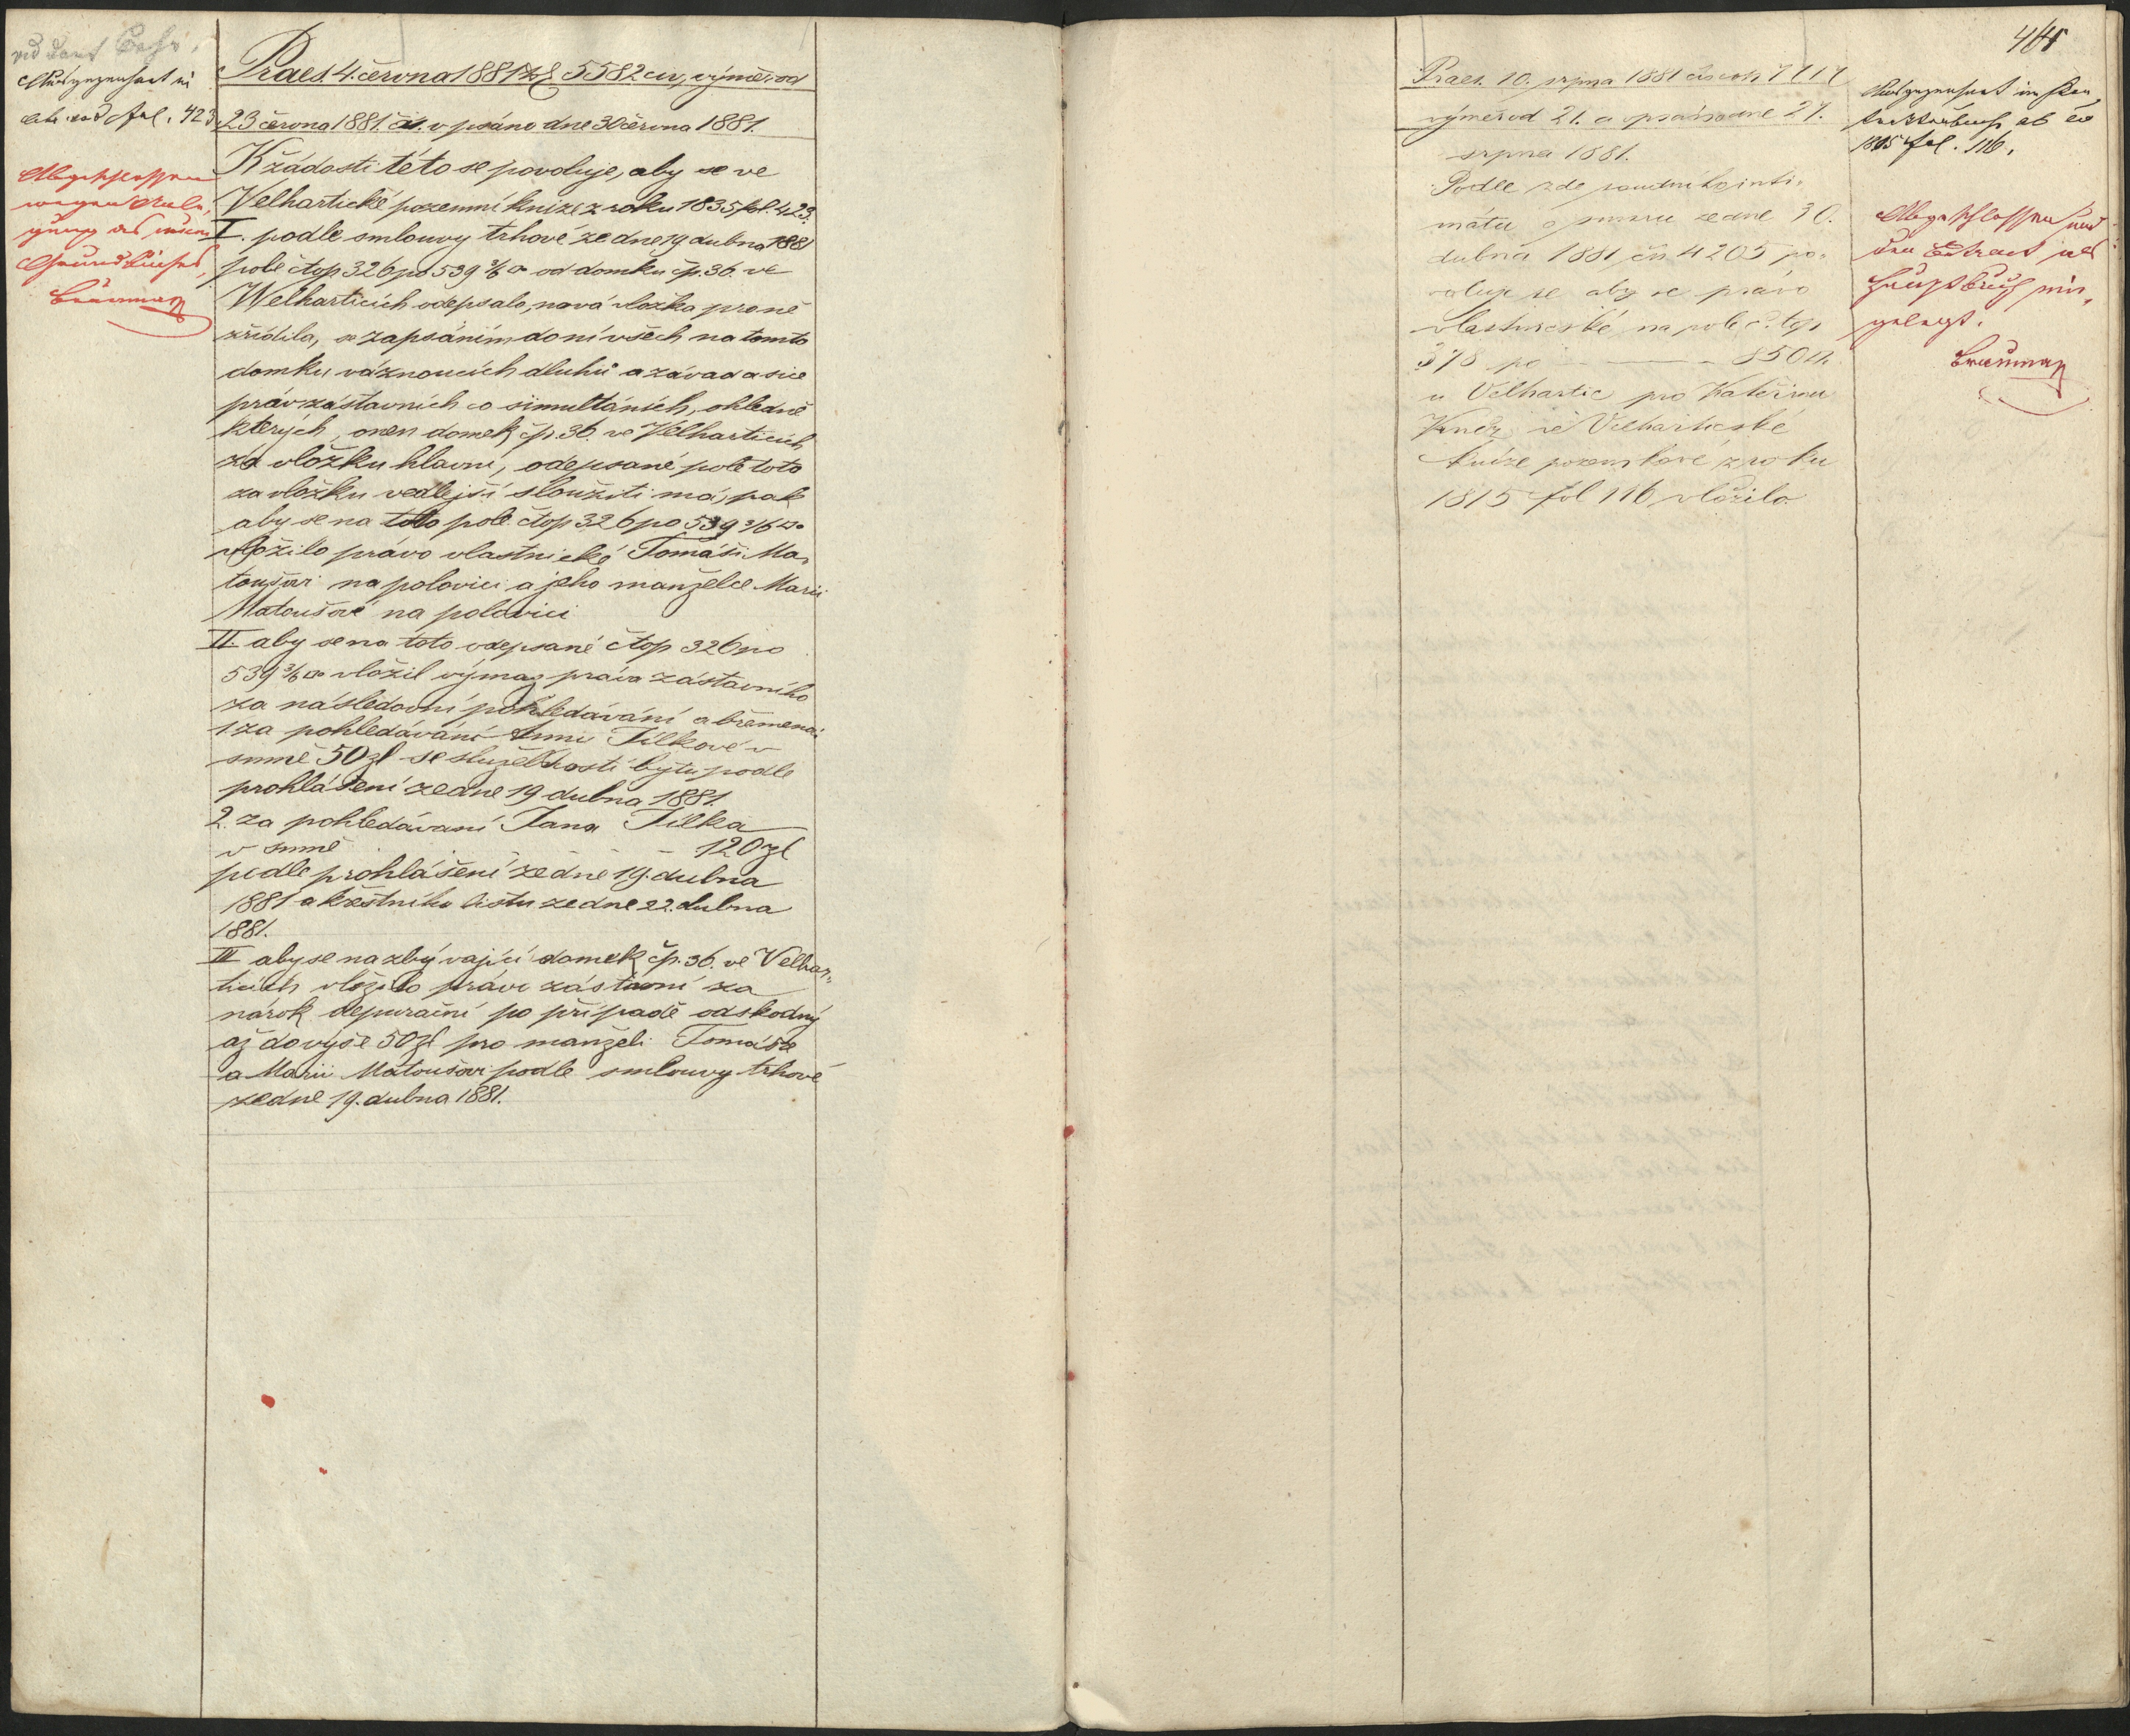 Ausgezeichnet in
fol. 423
Abgeschlossen
wegen Anle-
gung des neuen
Grundbuches,
Praes. 4. června 1881 5582 civ, výměr od
23 června 1881. čís. vpsáno dne 30 června 1881.
K žádosti této se povoluje, aby se ve
Velhartické pozemní knize z roku 1835 fol. 423.
I. podle smlouvy trhové ze dne 19 dubna 1881
pole čtop 326 po 539 3/6 □° od domku čp. 36. ve
Welharticích odepsalo, nová vložka pro ně
zřídila, se zapsáním do ní všech na tomto
domku váznoucích dluhů a závad a sice
práv zástavních co simultáních, ohledně
kterých, onen domek čp. 36. ve Velharticích
za vložku hlavní, odepsané pole toto
za vložku vedlejší sloužiti má, pak
aby se na toto pole čtop 326 po 539 3/6 □°
vložilo právo vlastnické Tomáši Ma-
toušovi na polovici a jeho manželce Marii
Matoušové na polovici
II. aby se na toto odepsané čtop 326 po
539 3/6 □° vložil výmaz práva zástavního
za následovní pohledávání a břemena:
1. za pohledávání Anny Jílkové v
sumě 50 zl se služebností bytu podle
prohlášení ze dne 19 dubna 1881.
2. za pohledávaní Jana Jílka
v sumě - - - 120 zl
podle prohlášení ze dne 19. dubna
1881 a křestního listu ze dne 22. dubna
1881.
III aby se na zbývající domek čp. 36. ve Velhar-
ticích vložilo právo zástavní za
nárok depurační po případě odškodný
až do výše 50 zl pro manželi Tomáše
a Marii Matoušovi podle smlouvy trhové
ze dne 19. dubna 1881.
Praes. 10. srpna 1881 čís
výměr od 21. a vpsáno dne 27.
srpna 1881.
Podle zde soudního inti-
mátu o smíru ze dne 30.
dubna 1881 čís 4205 po-
voluje se aby se právo
vlastnické na pole č. top
378 po - - - 850
u Velhartic pro Kateřinu
ve Velhartické
knize pozemkové z roku
1815 fol 116 vložilo.
Ausgezeichnet im Kon-
traktenbuch ab ao
1815 fol. 116.
Abgeschlossen und
den Extract ins
Hauptbuch ein-
gelegt.